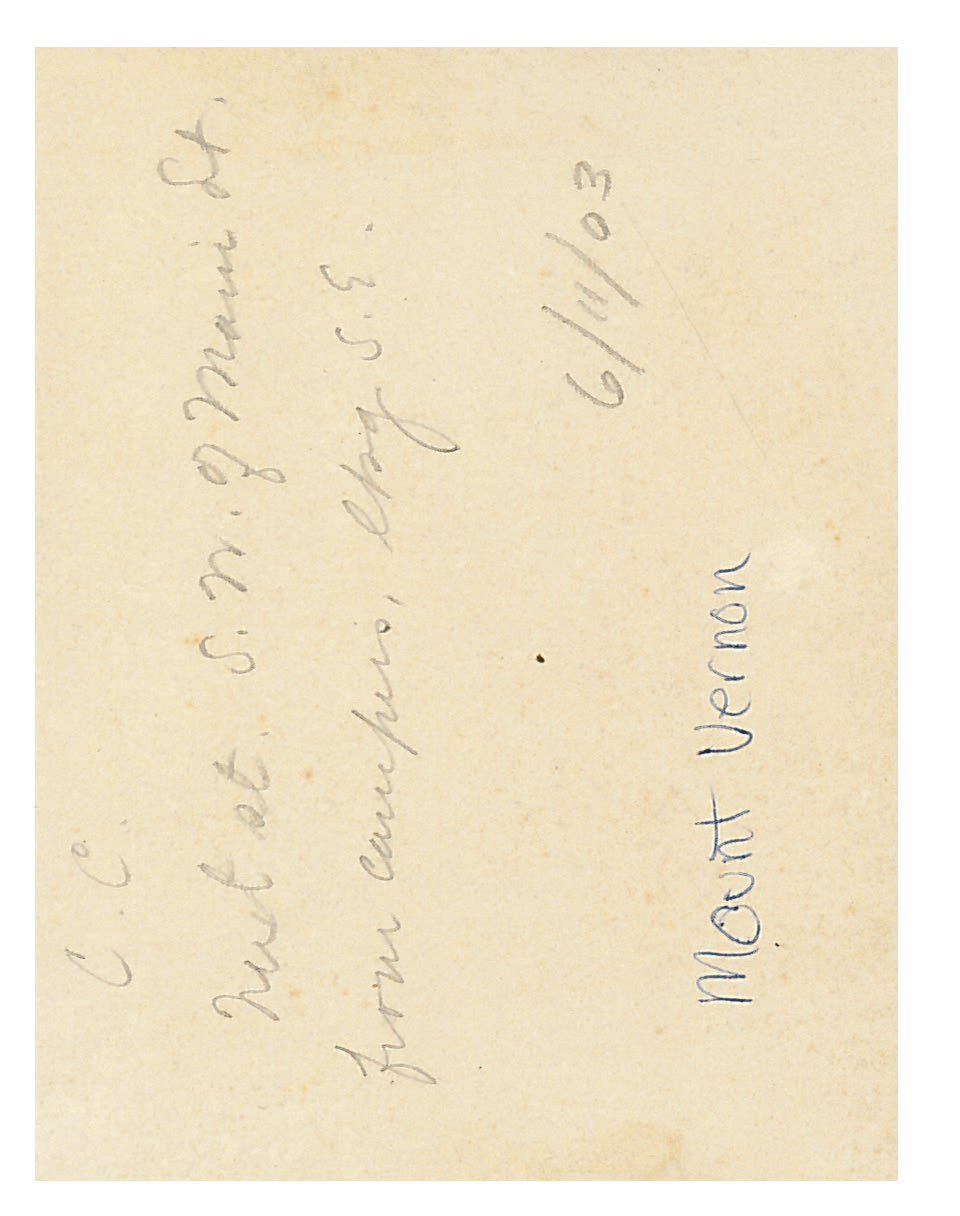 C C.
Next st. S. W. of Main St.
from campus, lkng S. E.
6/11/03
Mount Vernon